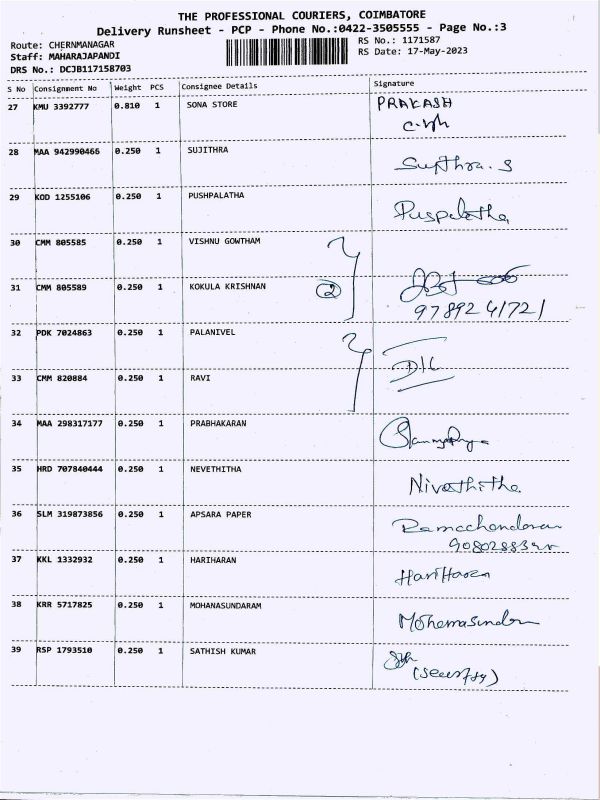 THE PROFESSIONAL COURIERS, COIMBATORE
Delivery Runsheet - PCP - Phone No.:0422-3505555 - Page No.:3
Route: CHERNMANAGAR RS No.: 1171587
Staff: MAHARAJAPANDI RS Date: 17-May-2023
DRS No.: DCJB117158703
S No Consignment No Weight PCS Consignee Details Signature
27 KMU 3392777 0.810 1 SONA STORE PRAKASH
28 MAA 942990466 0.250 1 SUJITHRA Sujithra. S
29 KOD 1255106 0.250 1 PUSHPALATHA Puspalatha
30 CMM 805585 0.250 1 VISHNU GOWTHAM
31 CMM 805589 0.250 1 KOKULA KRISHNAN 2
9789241721
32 PDK 7024863 0.250 1 PALANIVEL
33 CMM 820884 0.250 1 RAVI
34 MAA 298317177 0.250 1 PRABHAKARAN
35 HRD 707840444 0.250 1 NEVETHITHA Nivethitha
36 SLM 319873856 0.250 1 APSARA PAPER Ramachandaran
37 KKL 1332932 0.250 1 HARIHARAN Hariharan
38 KRR 5717825 0.250 1 MOHANASUNDARAM
39 RSP 1793510 0.250 1 SATHISH KUMAR
(Security)